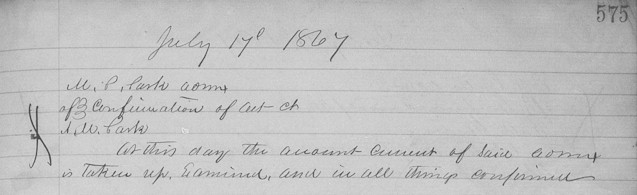 575
July 17d 1867
M. P. Park admx
of } Confirmation of act ct
A. M. Park
At this day the account Current of Said admx
is taken up, Examind, and in all things confirmed